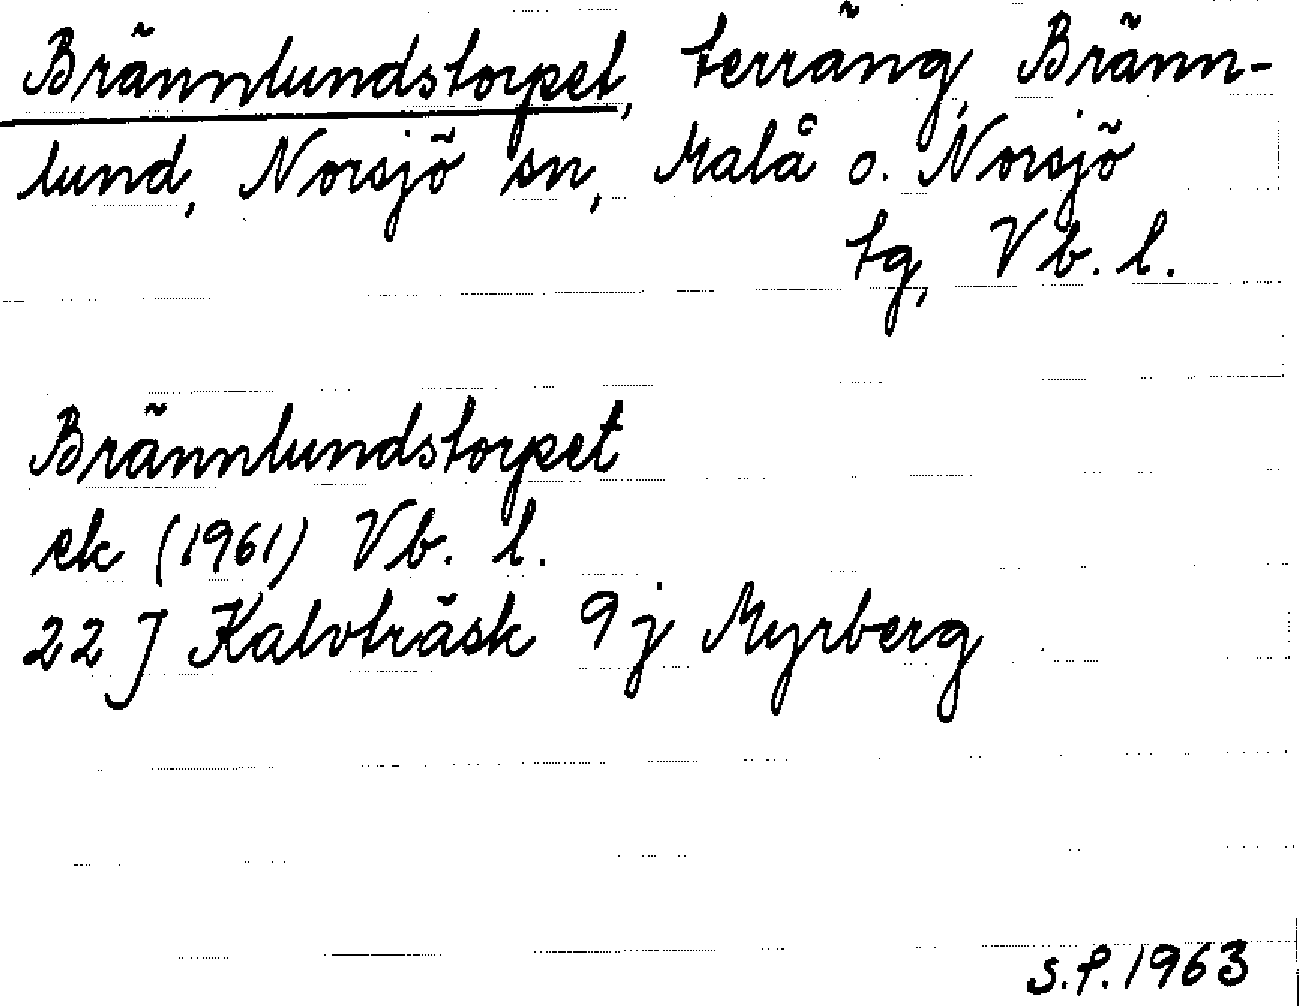 Brännlundstorpet, terräng, Bränn-
lund, Norsjö sn, Malå o. Norsjö
tg, Vb. l.
Brännlundstorpet
ek (1961) Vb. l.
22 J Kalvträsk 9 j Myrberg
S.P. 1963